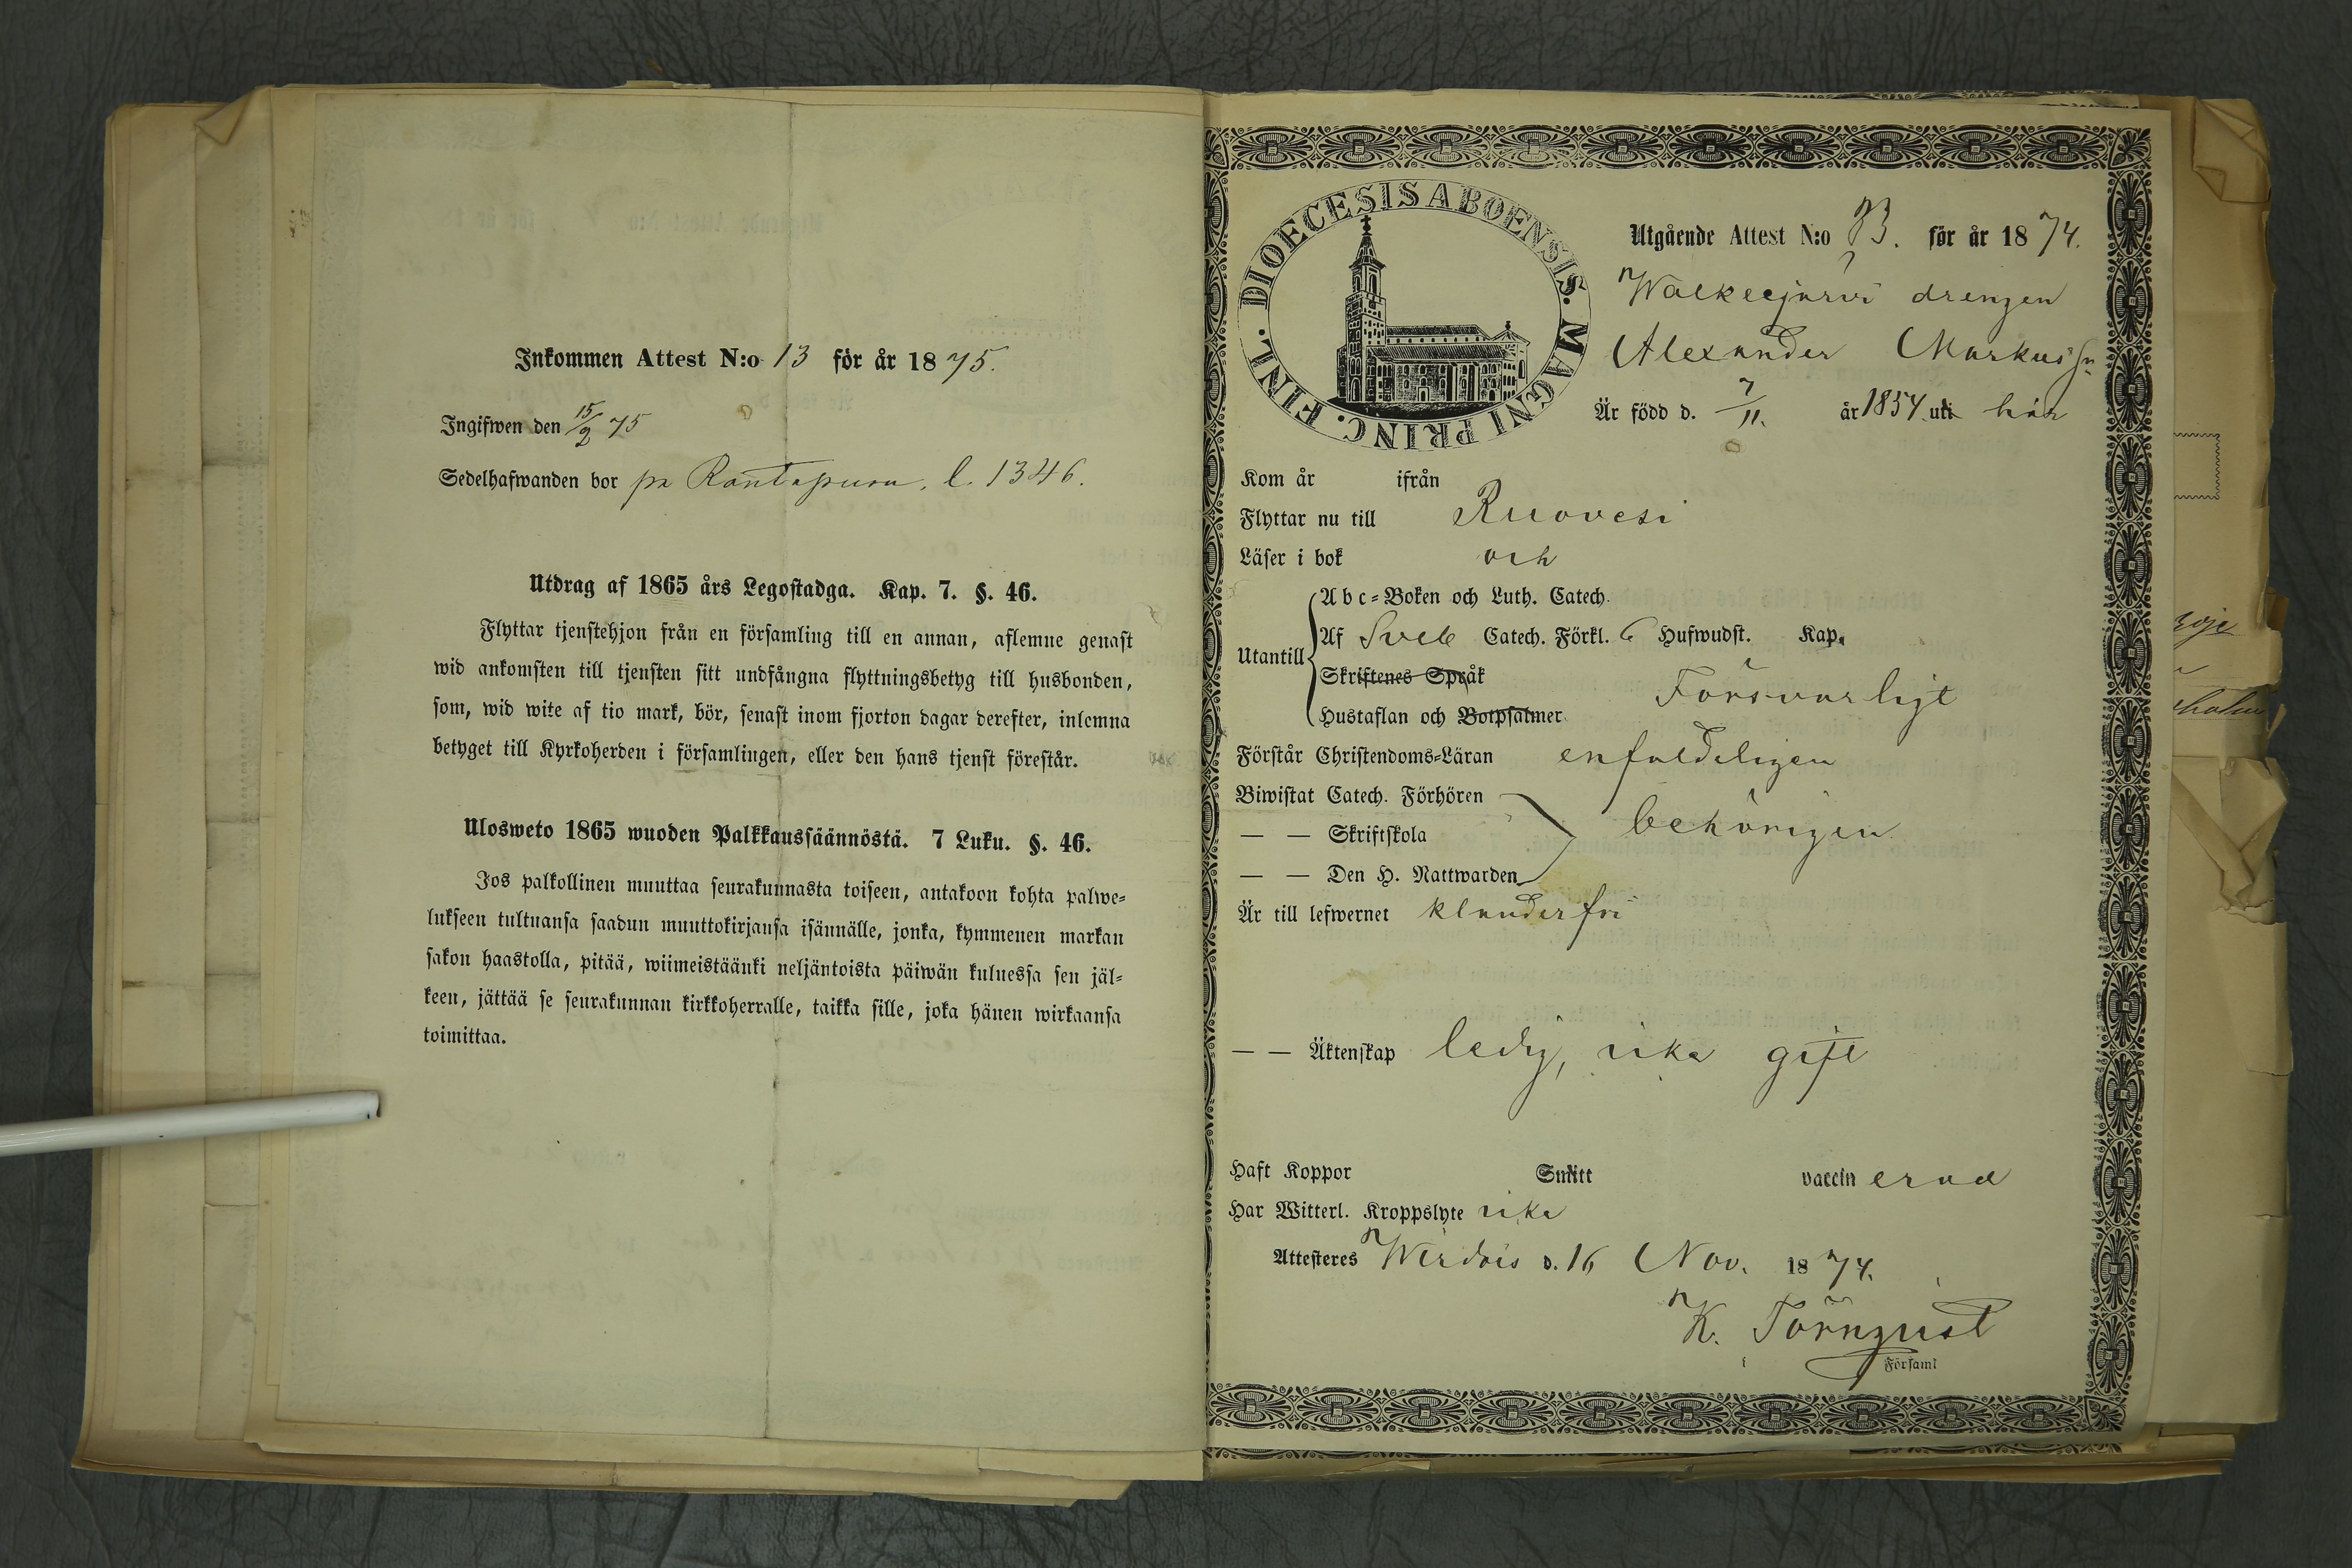 Inkommen Attest N:o 13 för år 1875.
Ingifwen den 15/2 75
Sedelhafwanden bor på Rantapuro, l. 1346.
Utdrag af 1865 års Legostadga. Kap. 7. §. 46.
Flyttar tjenstehjon från en församling till en annan, aflemne genast
wid ankomsten till tjensten sitt undfångna flyttningsbetyg till husbonden,
som, wid wite af tio mark, bör, senast inom fjorton dagar derefter, inlemna
betyget till Kyrkoherden i församlingen, eller den hans tjenst förestår.
Ulosweto 1865 wuoden Palkkaussäännöstä. 7 Luku. §. 46.
Jos palkollinen muuttaa seurakunnasta toiseen, antakoon kohta palwe-
lukseen tultuansa saadun muuttokirjansa isännälle, jonka, kymmenen markan
sakon haastolla, pitää, wiimeistäänki neljäntoista päiwän kuluessa sen jäl-
keen, jättää se seurakunnan kirkkoherralle, taikka sille, joka hänen wirkaansa
toimittaa.
DIOECESIS ABOENSIS. MAGNI PRINC. FINL.
Utgående Attest N:o för år 1874.
Walkeejärvi drengen
Alexander Markuss sn
Är född d. 7/11. år 1854 uti här
Kom år ifrån
Flyttar nu till Ruovesi
Läser i bok och
Utantill
Abc-Boken och Luth. Catech.
Af Sveb Catech. Förkl. 6 Hufwudst. Kap.
Skriftenes Språk
Hustaflan och Botpsalmer. Försvarligt
Förstår Christendoms-Läran enfaldeligen
Biwistat Catech. Förhören
— — Skriftskola behörigen
— — Den H. Nattwarden
Är till lefwernet klanderfri
— — Äktenskap ledig, icke gift
Haft Koppor Smitt vaccinerad
Har Witterl. Kroppslyte icke
Attesteres Wirdois d. 16 Nov. 1874.
K. Törnqvist
Församl